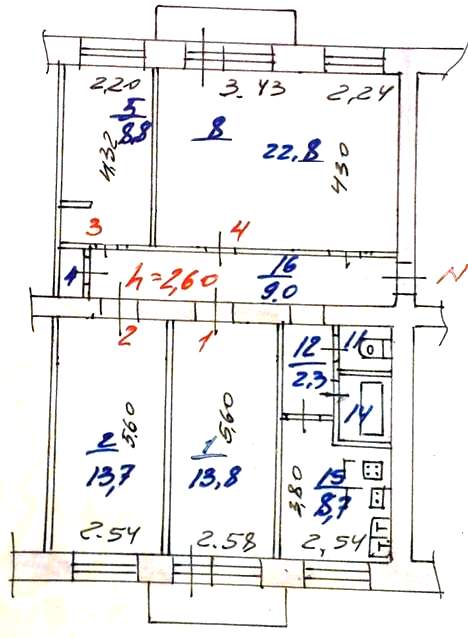 2,20 3.43 2,24
5
8,8
4,32
8
22,8
4,30
3 4
4 h=2,60 16
9.0
N
2 1
12
2,3
11
14
2
13,7
5,60
1
13,8
5,60
3,80
15
8,7
2.54 2.58 2,54